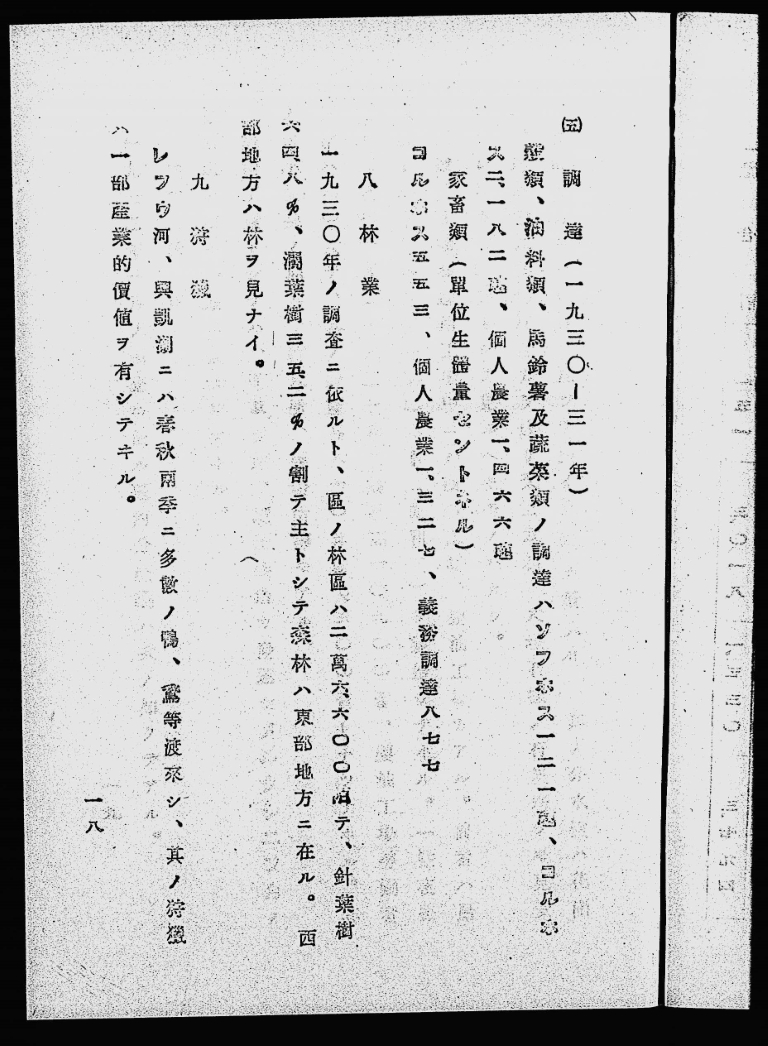 ㈤ 調達(一九三〇ー三一年)
類、油料類、馬鈴薯及蔬菜類ノ調達ハソフホス一二一瓲、コルホ
ス二、一八二瓲、個人農業一、四六六瓲
家畜類(單位生體量セントネル)
コルホス五五三、個人農業一、三二七、義務調達八七七
八 林業
一九三〇年ノ調査ニ依ルト、區ノ林區ハ二萬六、六〇〇陌テ、針葉樹
六四、八%、濶葉樹三五、二%ノ割テ主トシテ森林ハ東部地方ニ在ル。西
部地方ハ林ヲ見ナイ。
九 狩獵
レフウ河、興凱湖ニハ春秋兩季ニ多數ノ鴨、等渡來シ、其ノ狩獵
ハ一部産業的價値ヲ有シテヰル。
一八